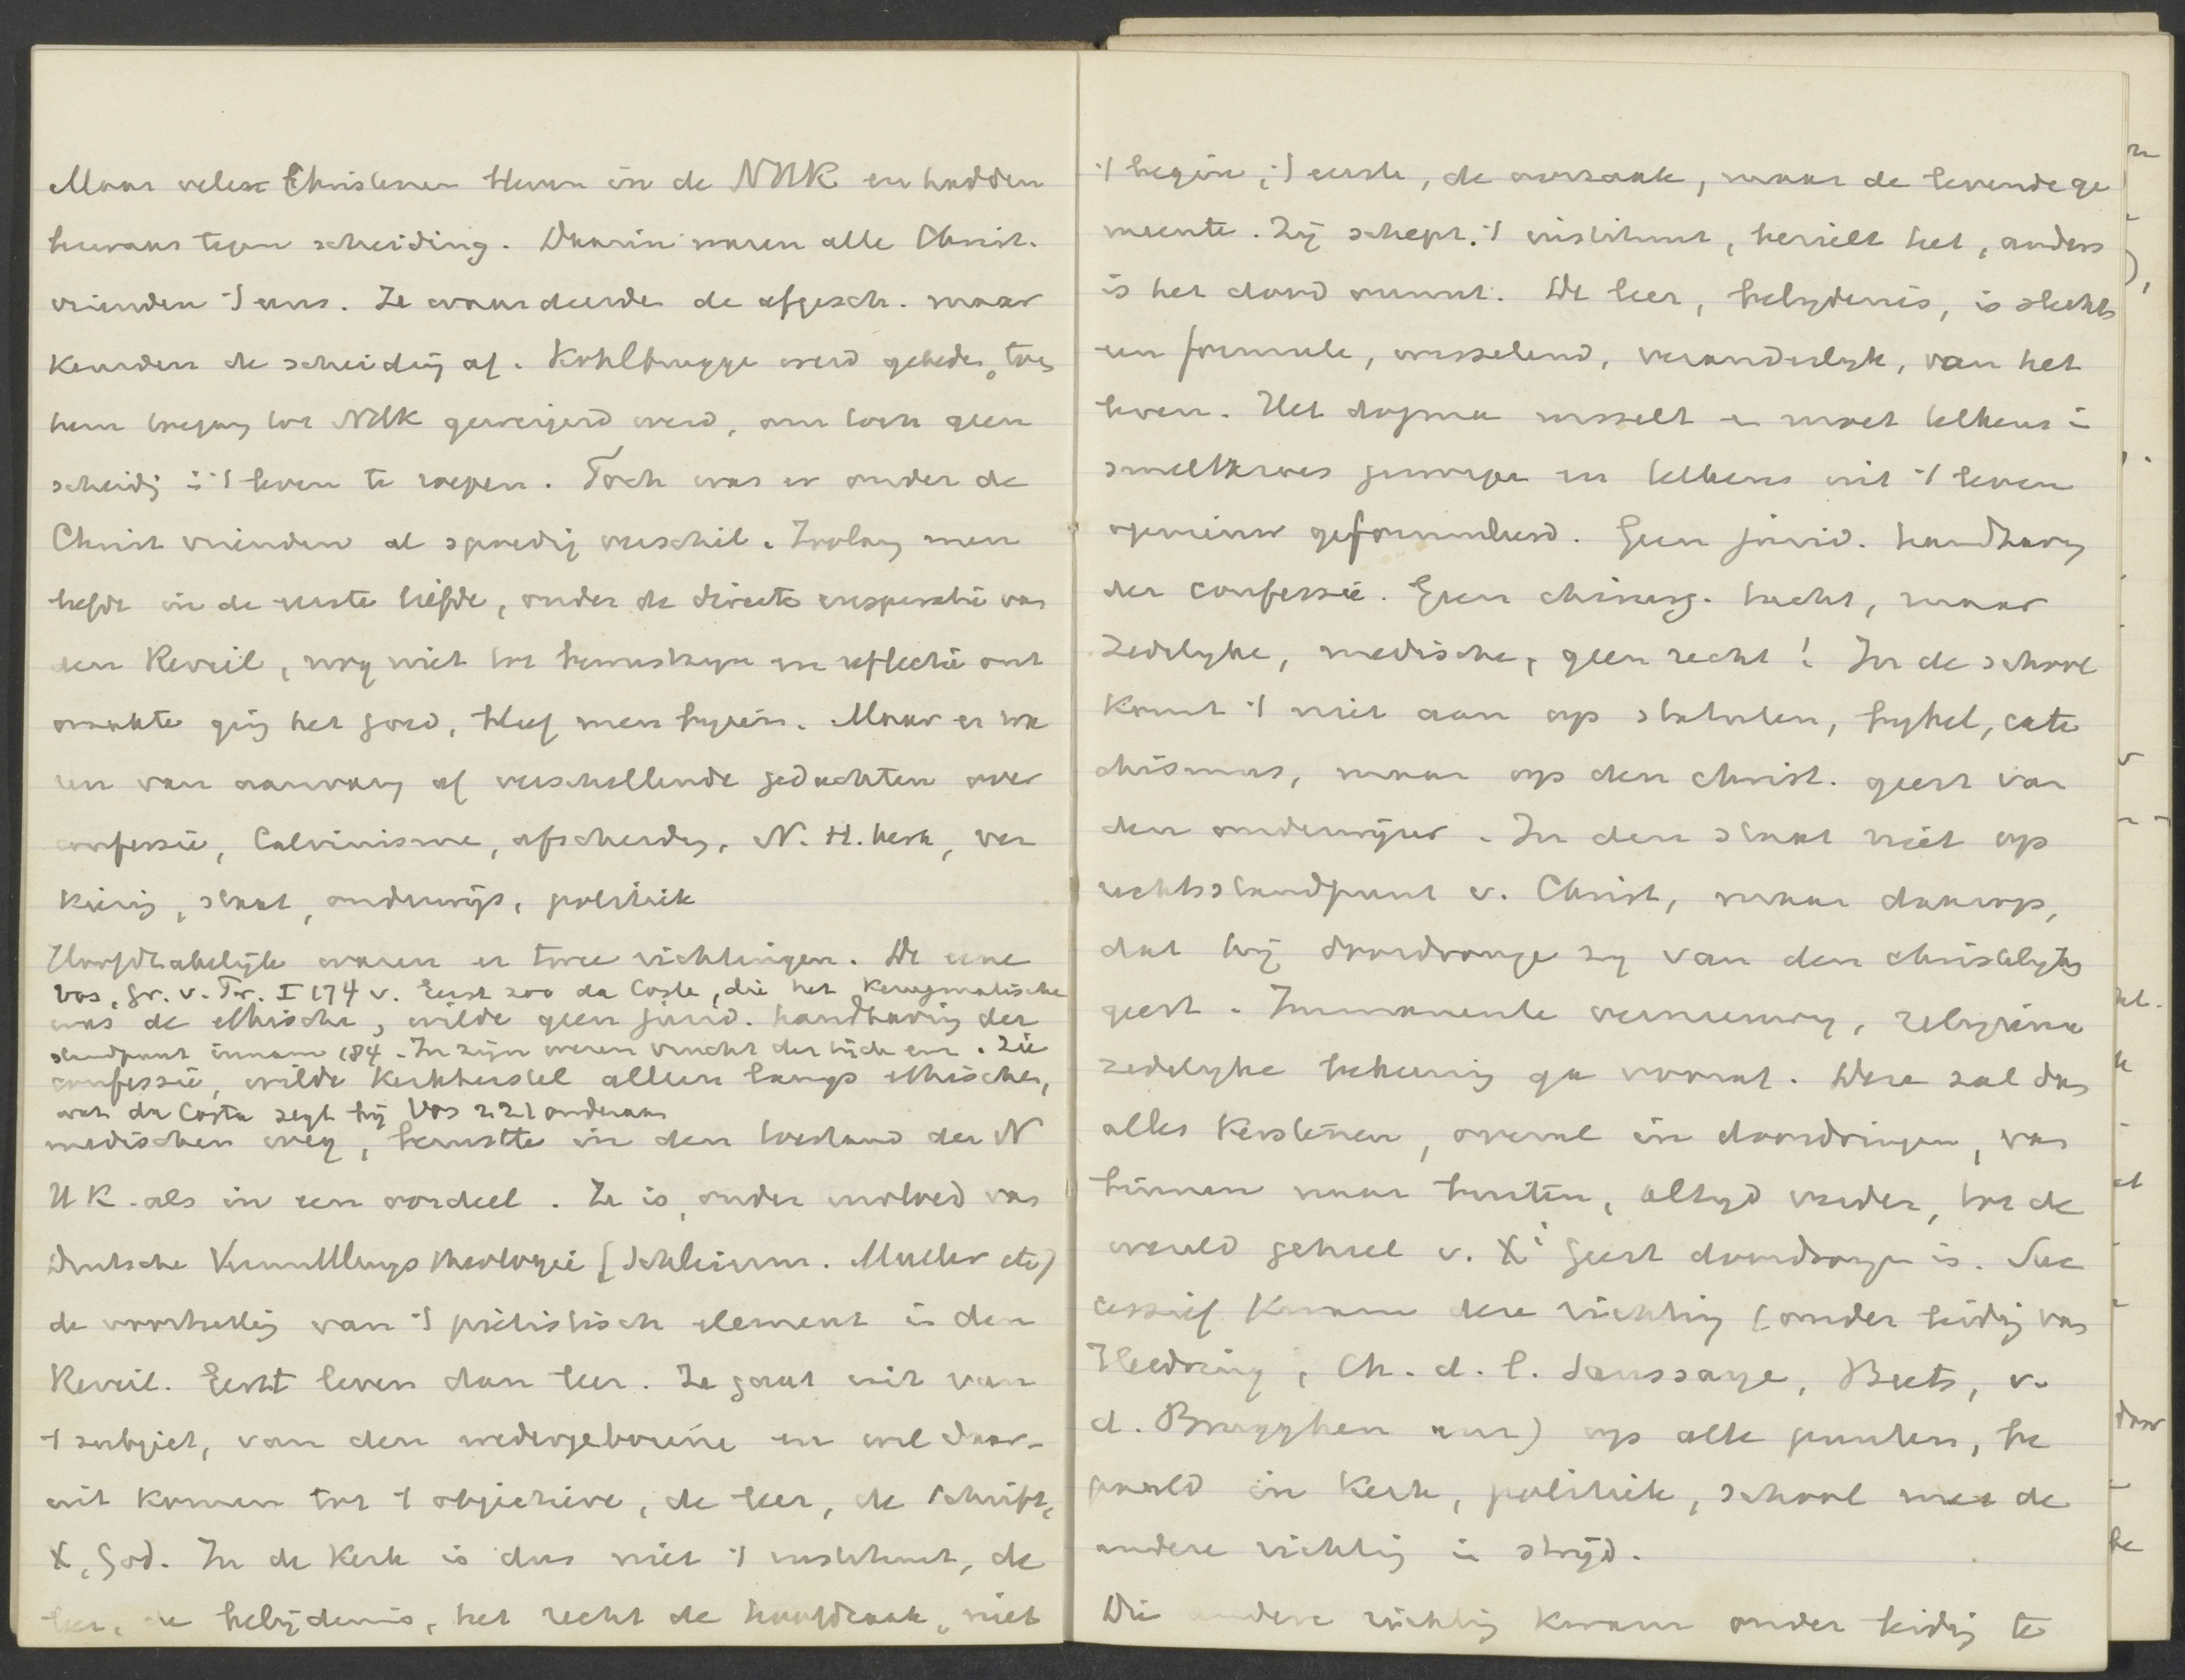 Maar vele Christenen bleven in de NHK en hadden
bezwaar tegen scheiding. Daarin waren alle Christ.
vrienden 't eens. Ze waardeerden de afgesch. maar
keurden de scheiding af. Kohlbrugge werd gebeden, toen
hem toegang tot NHK geweigerd werd, om toch geen
scheidg i 't leven te roepen. Toch was er onder de
Christ vrienden al spoedig verschil. Zoolang men
leefde in de eerste liefde, onder de directe inspiratie van
den Reveil, nog niet tot bewustzijn en reflectie ont
waakte ging het goed, bleef men bijeen. Maar er wa
ren van aanvang af verschillende gedachten over
confessie, Calvinisme, afscheidg, N. H. kerk, ver
kiezing, staat, onderwijs, politiek
Hoofdzakelijk waren er twee richtingen. De eene
Vos, Gr. v. Pr. I 174 v. Eerst zoo da Costa, die het Kerygmatische
was de ethische, wilde geen jurid. handhaving der
standpunt innam 184. In zijn weren vrucht der tijden en. Zie
confessie, wilde kerkherstel alleen langs ethischen,
wat da Costa zegt bij Vos 221 onderaan
medischen weg, berustte in den toestand der N
H K. als in een oordeel. Ze is, onder invloed van
Duitsche Vermittlungs theologie (Schleierm. Muller etc)
de voortzetting van 't pietistisch element in den
Reveil. Eerst leven dan leer. Ze gaat uit van
't subject, van den wedergeborene en wil daar-
uit komen tot 't objectieve, de leer, de Schrift,
X, God. In de Kerk is dus niet 't instituut, de
leer, de belijdenis, het recht de hoofdzaak, niet
't begin, 't eerste, de oorzaak, maar de levende ge
meente. Zij schept 't instituut, bezielt het, anders
is het dood onnut. De leer, belydenis, is slechts
een formule, wisselend, veranderlyk, van het
leven. Het dogma wisselt en moet telkens i
smeltkroes geworpen en telkens uit 't leven
opnieuw geformuleerd. Geen jurid. handhavg
der confessie. Geen chirurg. tucht, maar
zedelyke, medische, geen recht! In de school
komt 't niet aan op statuten, bybel, cate
chismus, maar op den christ. geest van
den onderwijzer. In den staat niet op
rechtsstandpunt v. Christ, maar daarop,
dat hij doordrongen zy van den christelyken
geest. Immanente vernieuwing, religieuse
zedelyke bekeering ga vooraf. Deze zal dan
alles kerstenen, overal in doordringen, van
binnen naar buiten, altyd verder, tot de
wereld geheel v. X' geest doordrongen is. Suc
cessief kwam deze richting (onder leidg van
Heldring, Ch. d. l. Saussaye, Beets, v.
d. Brugghen enz) op alle punten, be
paald in kerk, politiek, school met de
andere richting in strijd.
Die andere richting kwam onder leidg te